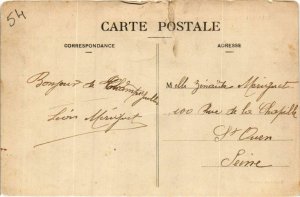 54
CARTE POSTALE
CORRESPONDANCE
ADRESSE
Bonjour de Champignolles
Léon Mériguet
Mlle Zénaïde Mériguet
100 Rue de la Chapelle
St Ouen
Seine